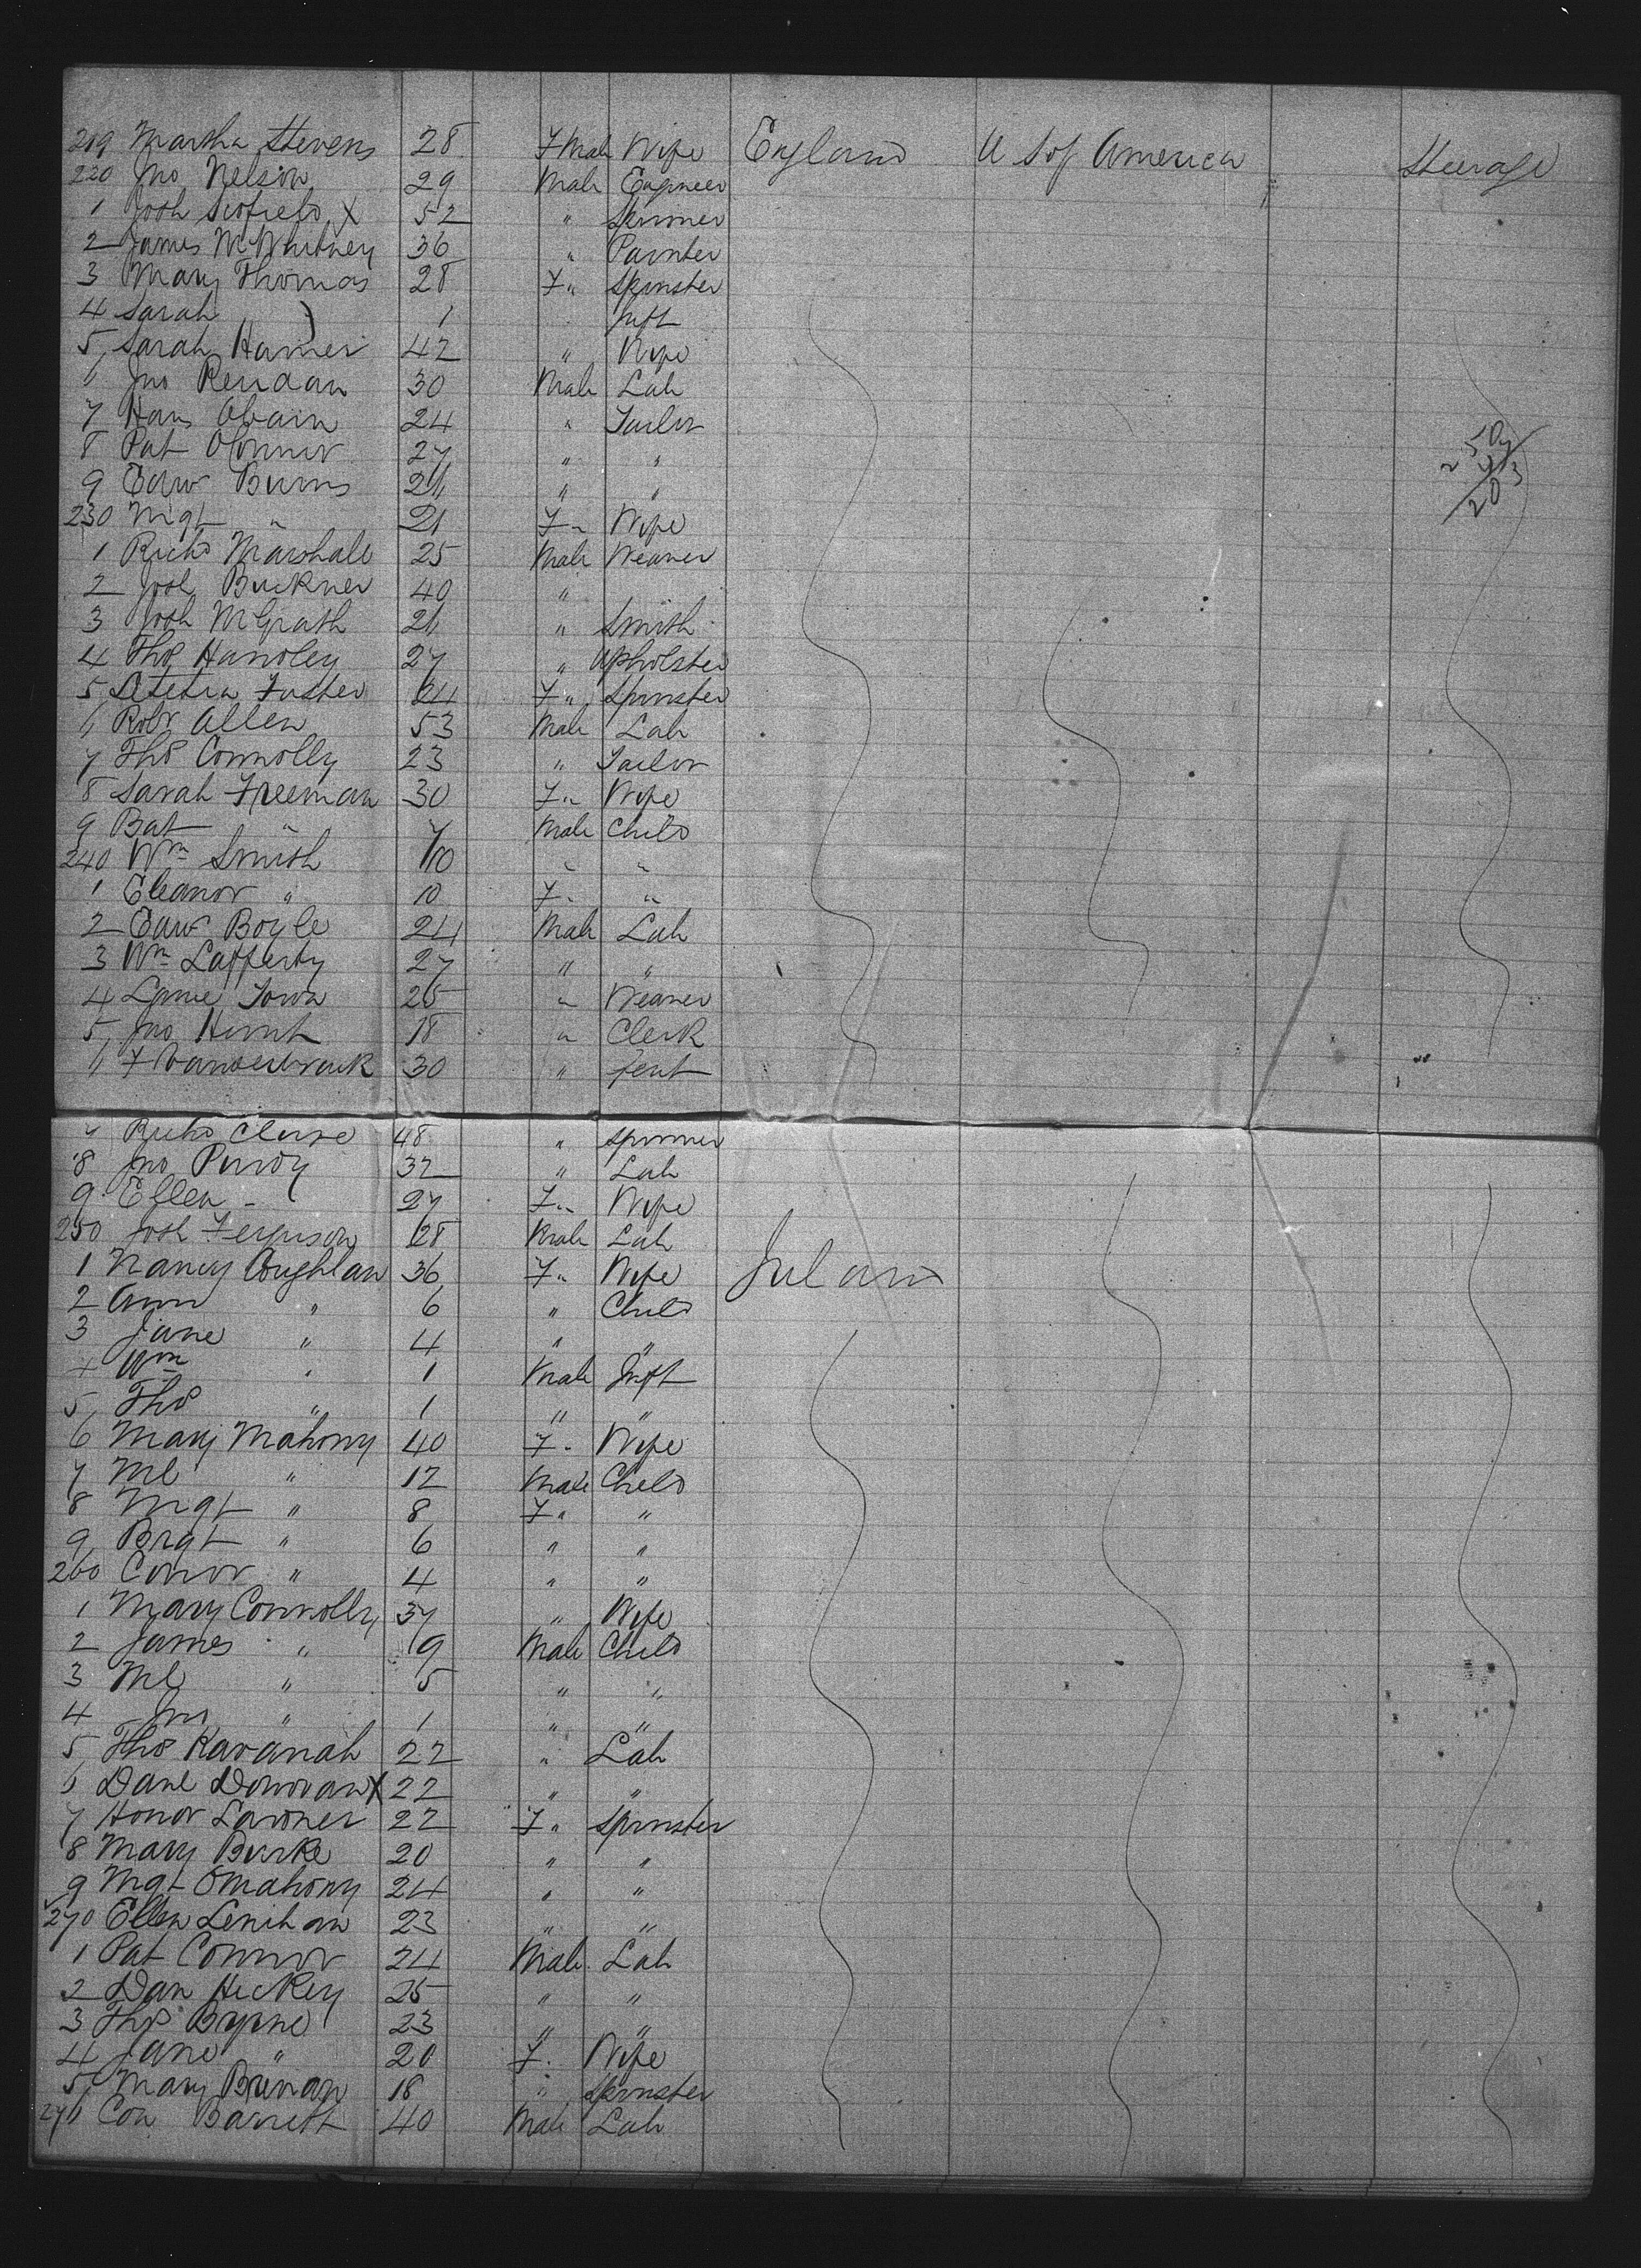 219 Martha Stevens 28 F Male Wife England U S of America Steerage
220 Jno Nelson 29 Male Engineer
1 Josh Scofield X 52 " Spinner
2 James McWhitney 36 " Painter
3 Mary Thomas 28 F " Spinster
4 Sarah 1 Inft
5 Sarah Hamer 42 " Wife
6 Jno Reudan 30 Male Lab
7 Hans 24 " Tailor
8 Pat OConnor 27 " "
9 Edwd Burns 26 " "
230 Mgt " 21 F " Wife
1 Richd Marshall 25 Male Weaver
2 Josh Buckner 40 "
3 Josh McGrath 26 " Smith
4 Thos Handley 27 " Upholster
5 Foster 24 F " Spinster
6 Robt Allen 53 Male Lab
7 Thos Connolly 23 " Tailor
8 Sarah Freeman 30 F " Wife
9 Bat " 7 Male Child
240 Wm Smith 10 " "
1 Eleanor " 10 F " "
2 Edwd Boyle 24 Male Lab
3 Wm Lafferty 27 " "
4 25 " Weaver
5 Jno 18 " Clerk
6 F 30 " Gent
7 Richd 48 " Spinner
8 Jno Purdy 32 " Lab
9 Ellen " 27 F " Wife
250 Josh Ferguson 28 Male Lab
1 Nancy Coughlan 36 F " Wife Ireland
2 Ann " 6 " Child
3 Jane " 4 " "
4 Wm " 1 Male Inft
5 Thos " 1 " "
6 Mary Mahony 40 F " Wife
7 Ml " 12 Male Child
8 Mgt " 8 F " "
9 Brgt " 6 " "
260 Conor " 4 " "
1 Mary Connolly 37 " Wife
2 James " 9 Male Child
3 Ml " 5 " "
4 Jno " 1 " "
5 Thos Kavanah 22 " Lab
6 Danl Donovan X 22 " "
7 Honor Lardner 22 F " Spinster
8 Mary Burke 20 " "
9 Mgt OMahony 24 " "
270 Ellen Lenihan 23 " "
1 Pat Connor 24 Male Lab
2 Dan Hickey 25 " "
3 Thos Byrne 23 " "
4 Jane " 20 F " Wife
5 Mary Brenan 18 " Spinster
276 Con Barrett 40 Male Lab